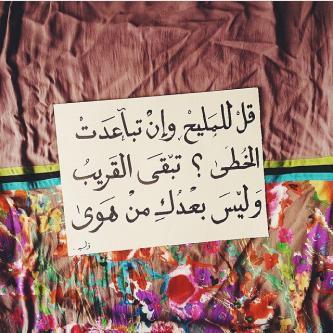 قل للمليح وإن تباعدت
الخطى ؟ تبقى القريب
وليس بعدك من هوى